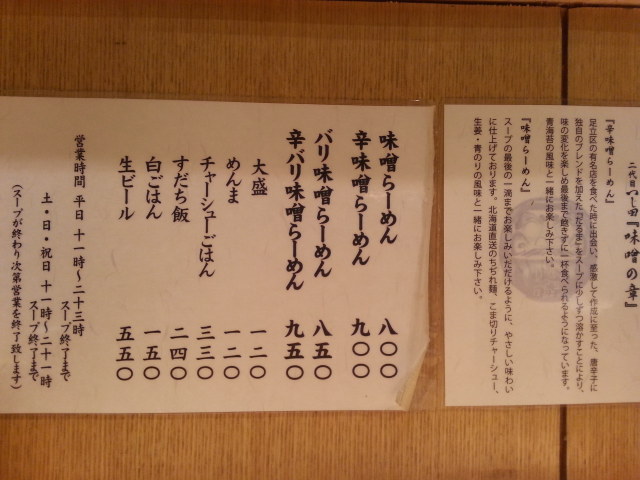 二代目つじ田『味噌の章』
『辛味噌らーめん』
足立区の有名店を食べた時に出会い、感激して作成に至った、唐辛子に
独自のブレンドを加えた『だるま』をスープに少しずつ溶かすことにより、
味の変化を楽しめ最後まで飽きずに一杯食べられるようになっています。
青海苔の風味と一緒にお楽しみ下さい。
『味噌らーめん』
スープの最後の一滴までお楽しみいただけるように、やさしい味わい
に仕上げております。北海道直送のちぢれ麺、こま切りチャーシュー、
生姜・青のりの風味と一緒にお楽しみ下さい。
味噌らーめん 八〇〇
辛味噌らーめん 九〇〇
バリ味噌らーめん 八五〇
辛バリ味噌らーめん 九五〇
大盛 一二〇
めんま 一二〇
チャーシューごはん 三三〇
すだち飯 二四〇
白ごはん 一五〇
生ビール 五五〇
営業時間 平日 十一時～二十三時
スープ終了まで
土・日・祝日 十一時～二十一時
スープ終了まで
(スープが終わり次第営業を終了致します)